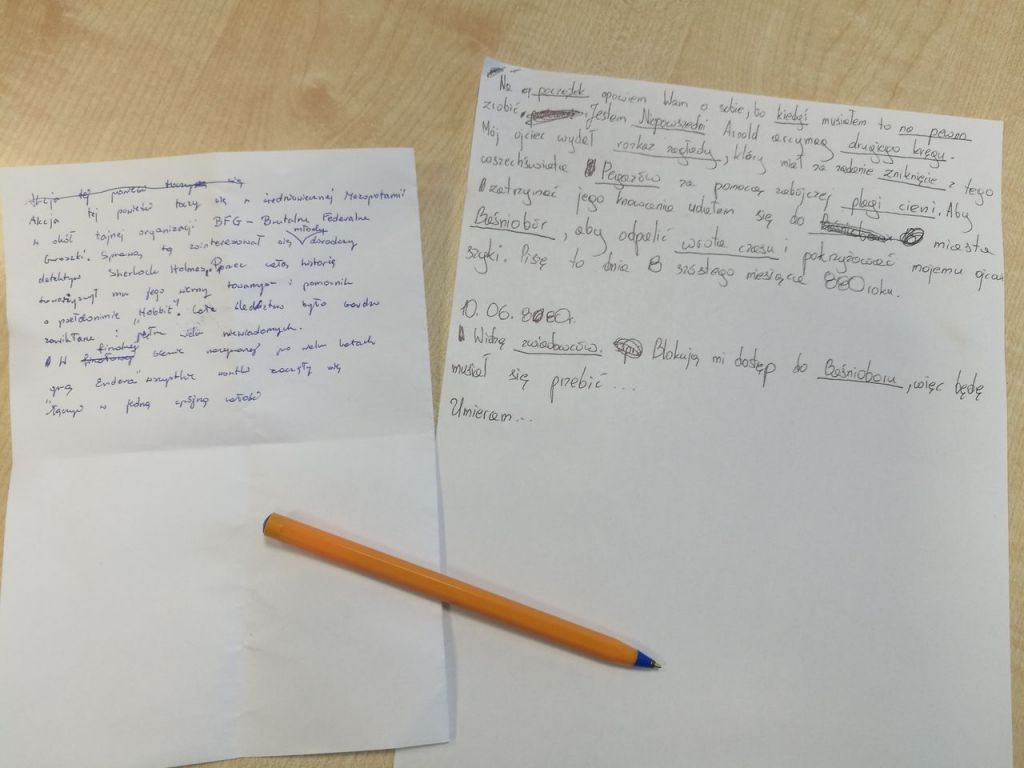 Akcja tej powieści toczy się
Akcja tej powieści toczy się w średniowiecznej Mezopotamii
w okół tajnej organizacji BFG - Brutalne Federalne
Gwoździki. Sprawą tą zainteresował się młody dorodny
detektyw Sherlock Holmes. Przez całą historię
towarzyszył mu jego wierny towarzysz i pomocnik
o pseudonimie "Hobbit". Całe śledztwo było bardzo
zawikłane i pełne wielu niewiadomych.
W finałowej finalnej scenie nazywanej po wielu latach
"grą Endera" wszystkie wątki zaczęły się
łączyć w jedną spójną całość
Na początek opowiem Wam o sobie, bo kiedyś musiałem to na pewno
zrobić. Jestem Niepowszedni Arnold arcymag drugiego kręgu.
Mój ojciec wydał rozkaz zagłady, który miał za zadanie zniknięcie z tego
wszechświata Pegazów za pomocą zabójczej plagi cieni. Aby
zatrzymać jego knowania udałem się do miasta
Baśniobór, aby odpalić wrota czasu i pokrzyżować mojemu ojcu
szyki. Piszę to dnia 8 szóstego miesiąca 880 roku.
10.06.880r.
Widzę zwiadowców. Blokują mi dostęp do Baśnioboru, więc będę
musiał się przebić...
Umieram...